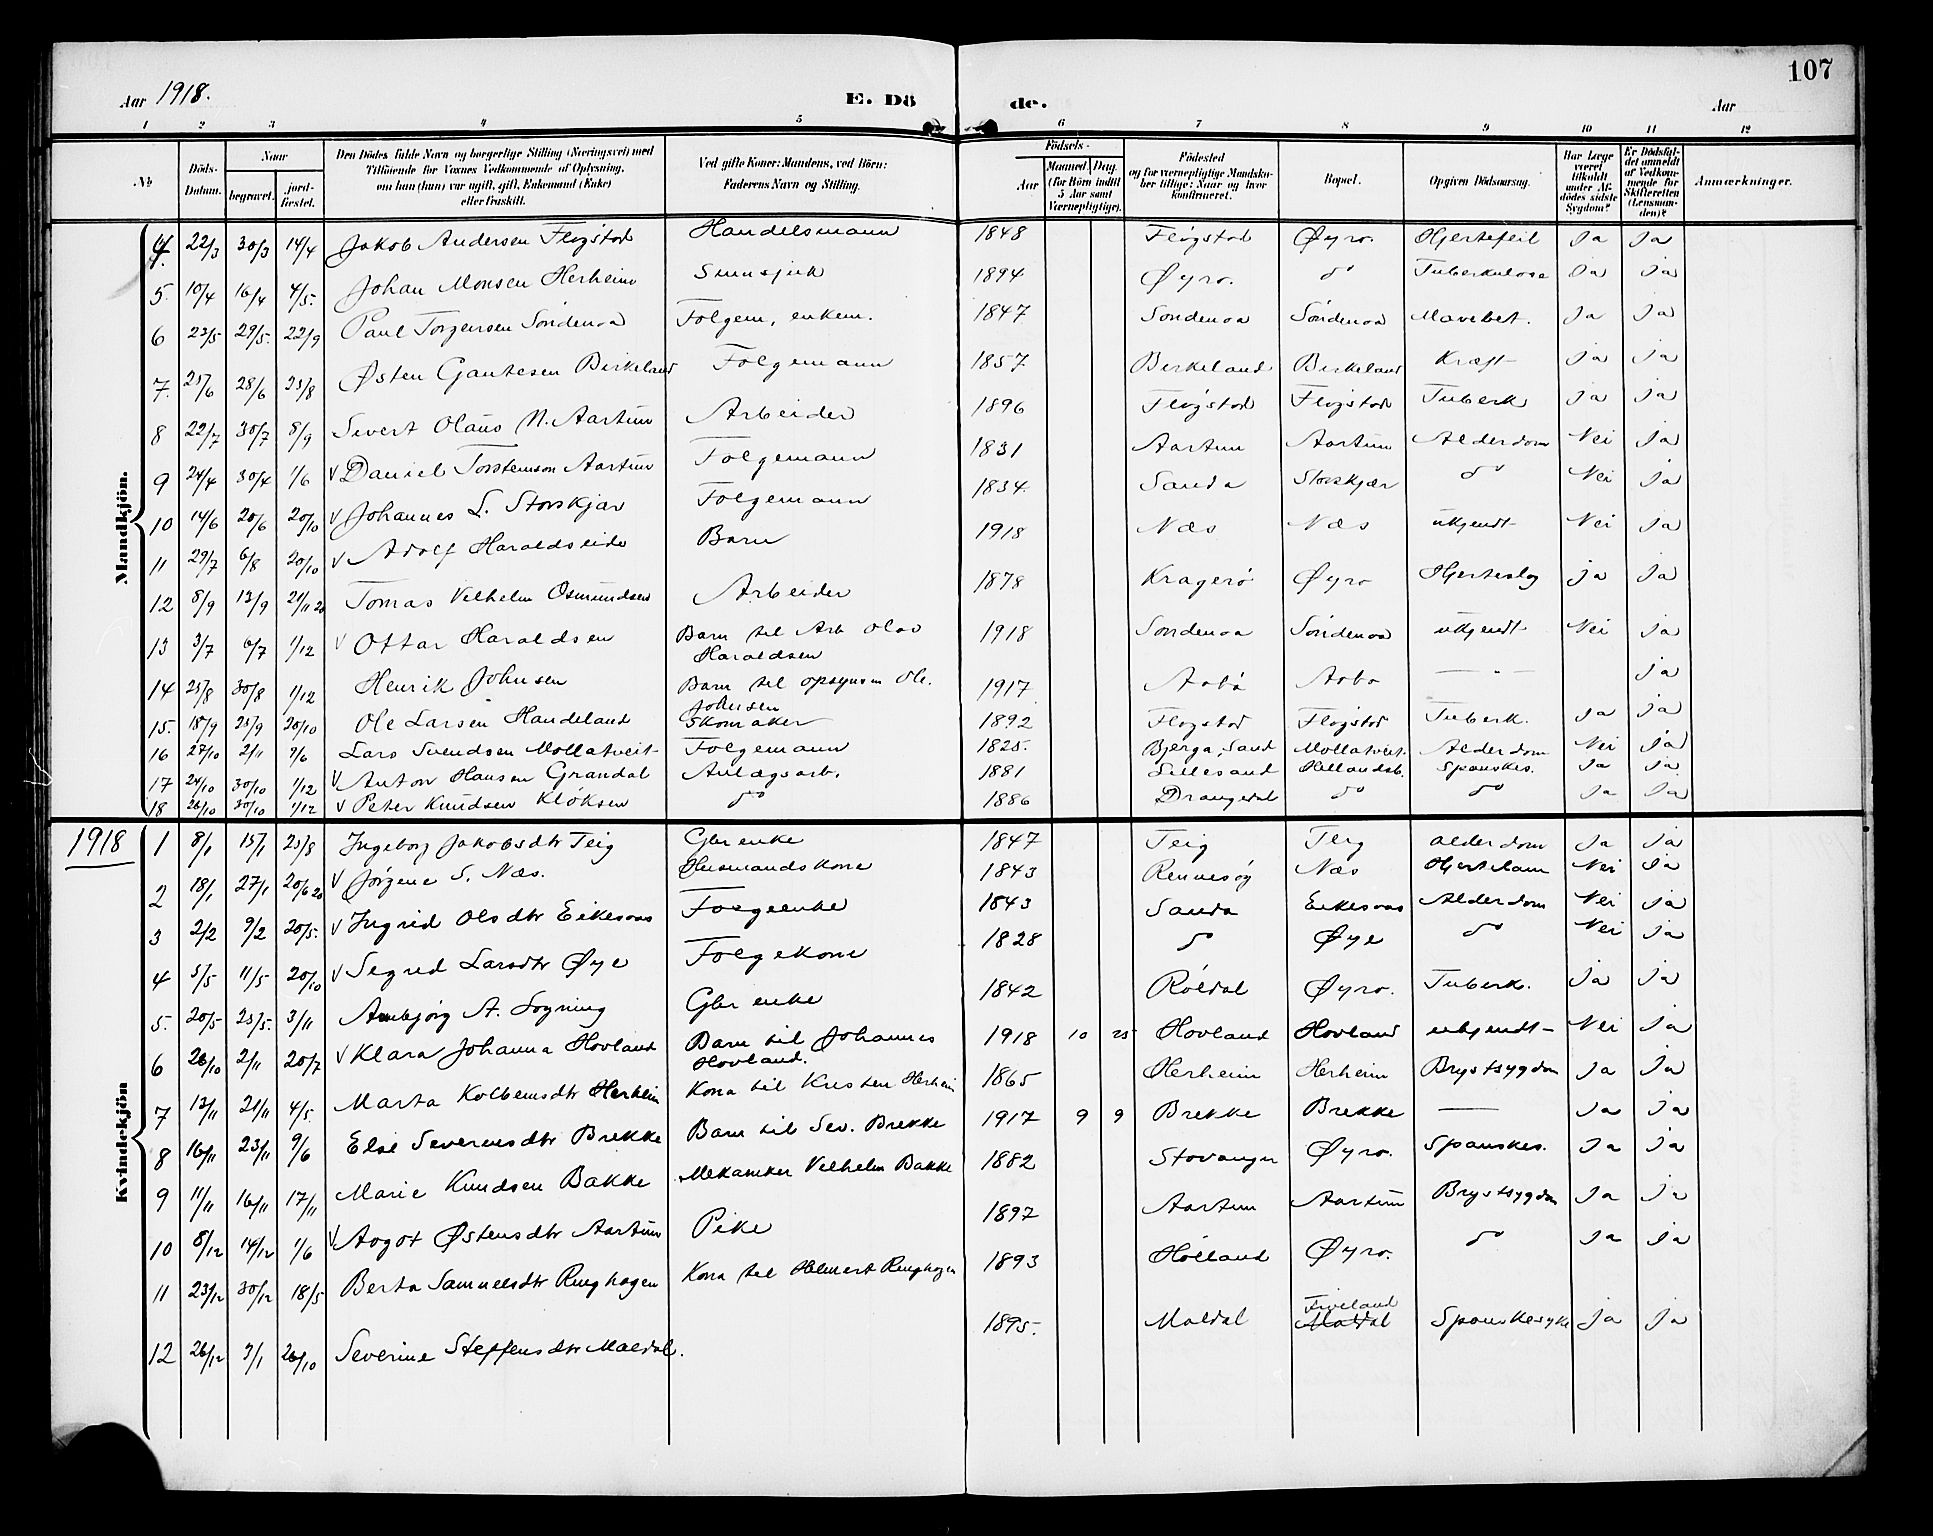 107
Aar 1918. E. Dö de. Aar
1 2 3 4 5 6 7 8 9 10 11 12
No Döds-Datum. Naar begravet. jord-fæstet. Den Dödes fulde Navn og borgerlige Stilling (Næringsvei) med Tilföiende for Voxnes Vedkommende af Oplysning, om han (hun) var ugift, gift, Enkemand (Enke) eller fraskilt. Ved gifte Koner: Mandens, ved Börn: Faderens Navn og Stilling. Födsels- Aar Maaned. Dag. (for Börn indtil 5 Aar samt Værnepligtige). Födested og for værnepligtige Mandskaber tillige: Naar og hvor konfirmeret. Bopæl. Opgiven Dödsaarsag. Har Læge været tilkaldt under Afdödes sidste Sygdom? Er Dödsfaldet anmeldt af Vedkommende for Skifteretten (Lensmanden)? Anmærkninger.
Mandkjön.
4. 22/3 30/3 14/4 Jakob Andersen Fløgstad Handelsmann 1848 Fløgstad Øyro. Hjertefeil Ja Ja
5. 10/4 16/4 4/5. Johan Monsen Herheim Sinnsjuk 1894 Øyro. do Tuberkulose Ja Ja
6 23/5 29/5. 22/9 Paul Torgersen Søndenaa Folgem, enkem. 1847 Søndenaa Søndenaa Mavebet. Ja Ja
7. 25/6 28/6 25/8 Østen Gautesen Birkeland Folgemann 1857 Birkeland Birkeland Kræft Ja Ja
8 22/7 30/7 8/9 Sivert Olaus N. Aartun Arbeider 1896 Fløgstad Fløgstad Tuberk Ja Ja
9 24/4 30/4 1/6 v Daniel Torsteinson Aartun Folgemann 1831 Aartun Aartun Alderdom Nei Ja
10 14/6 20/6 20/10 v Johannes L. Storskjar Folgemann 1834. Sanda Storskjær do Nei Ja
11 29/7 6/8 20/10 v Adolf Haraldseide Barn 1918 Næs Næs ukjendt Nei Ja
12 8/9 13/9 21/11 20 Tomas Vilhelm Osmundsen Arbeider 1878 Kragerø Øyro Hjerteslag ja Ja
13 3/7 6/7 1/12 v Ottar Haraldsen Barn til Arb Olav Haraldsen 1918 Søndenaa Søndenaa ukjendt Nei Ja
14 25/8 30/8 1/12 Henrik Johnsen Barn til opsynsm Ole. Johnsen 1917 Aabø Aabø — " — Ja
15. 18/9 25/9 20/10 Ole Larsen Handeland Skomaker 1892 Fløgstad Fløgstad Tuberk. Ja Ja
16 27/10 2/11 9/6 Lars Svendsen Mollatveit Folgemann 1825. Bjerga, Sand Mollatveit. Alderdom Nei Ja
17 24/10 30/10 1/12 v Anton Hansen Grandal Anlægsarb. 1881 Lillesand Hellandsb. Spanskes. Ja Ja
18 26/10 30/10 1/12 v Peter Knudsen Kløksen do 1886 Drangedal do do Ja Ja
1918
Kvindekjön
1 8/1 15/1 25/8 Ingeborg Jakobsdtr Teig Gbr enke 1847 Teig Teig alderdom Ja Ja
2 18/1 27/1 20/6 20 v Jørgine S. Næs. Husmandskone 1843 Rennesøy Næs Hjertelam Nei Ja
3 2/2 9/2 20/5. v Ingrid Olsdtr Eikesaas Folgeenke 1843 Sanda Eikesaas Alderdom Nei Ja
4 5/5 11/5 20/10 v Segred Larsdtr Øye Folgekone 1828 do Øye do Nei Ja
5. 20/5 25/5. 3/11 Ambjørg A. Sogning Gbr enke 1842 Røldal Øyro. Tuberk. Ja Ja
6 26/10 2/11 20/7 v Klara Johanna Hovland Barn til Johannes Hovland. 1918 10 25 Hovland Hovland ukjendt Nei Ja
7 13/11 21/11 4/5. Marta Kolbensdtr Herheim Kona til Kristen Herheim 1865 Herheim Herheim Brystsygdom Ja Ja
8 16/11 23/11 9/6 Else Severinsdtr Brekke Barn til Sev. Brekke 1917 9 9 Brekke Brekke — Ja Ja
9 11/11 16/11 17/11 Marie Knudsen Bakke Mekaniker Vilhelm Bakke 1882 Stavanger Øyro. Spanskes. Ja Ja
10 8/12 14/12 1/6 v Aagot Østensdtr Aartun Pike 1897 Aartun Aartun Brystsygdom Ja Ja
11 23/12 30/12 18/5 Berta Samuelsdtr Ringhagen Kona til Helmert Ringhagen 1893 Hølland Øyro. do Ja Ja
12 26/12 3/1 26/10 Severine Steffensdtr Maldal. 1895. Maldal Fiveland Maldal Spanskesyke Ja Ja